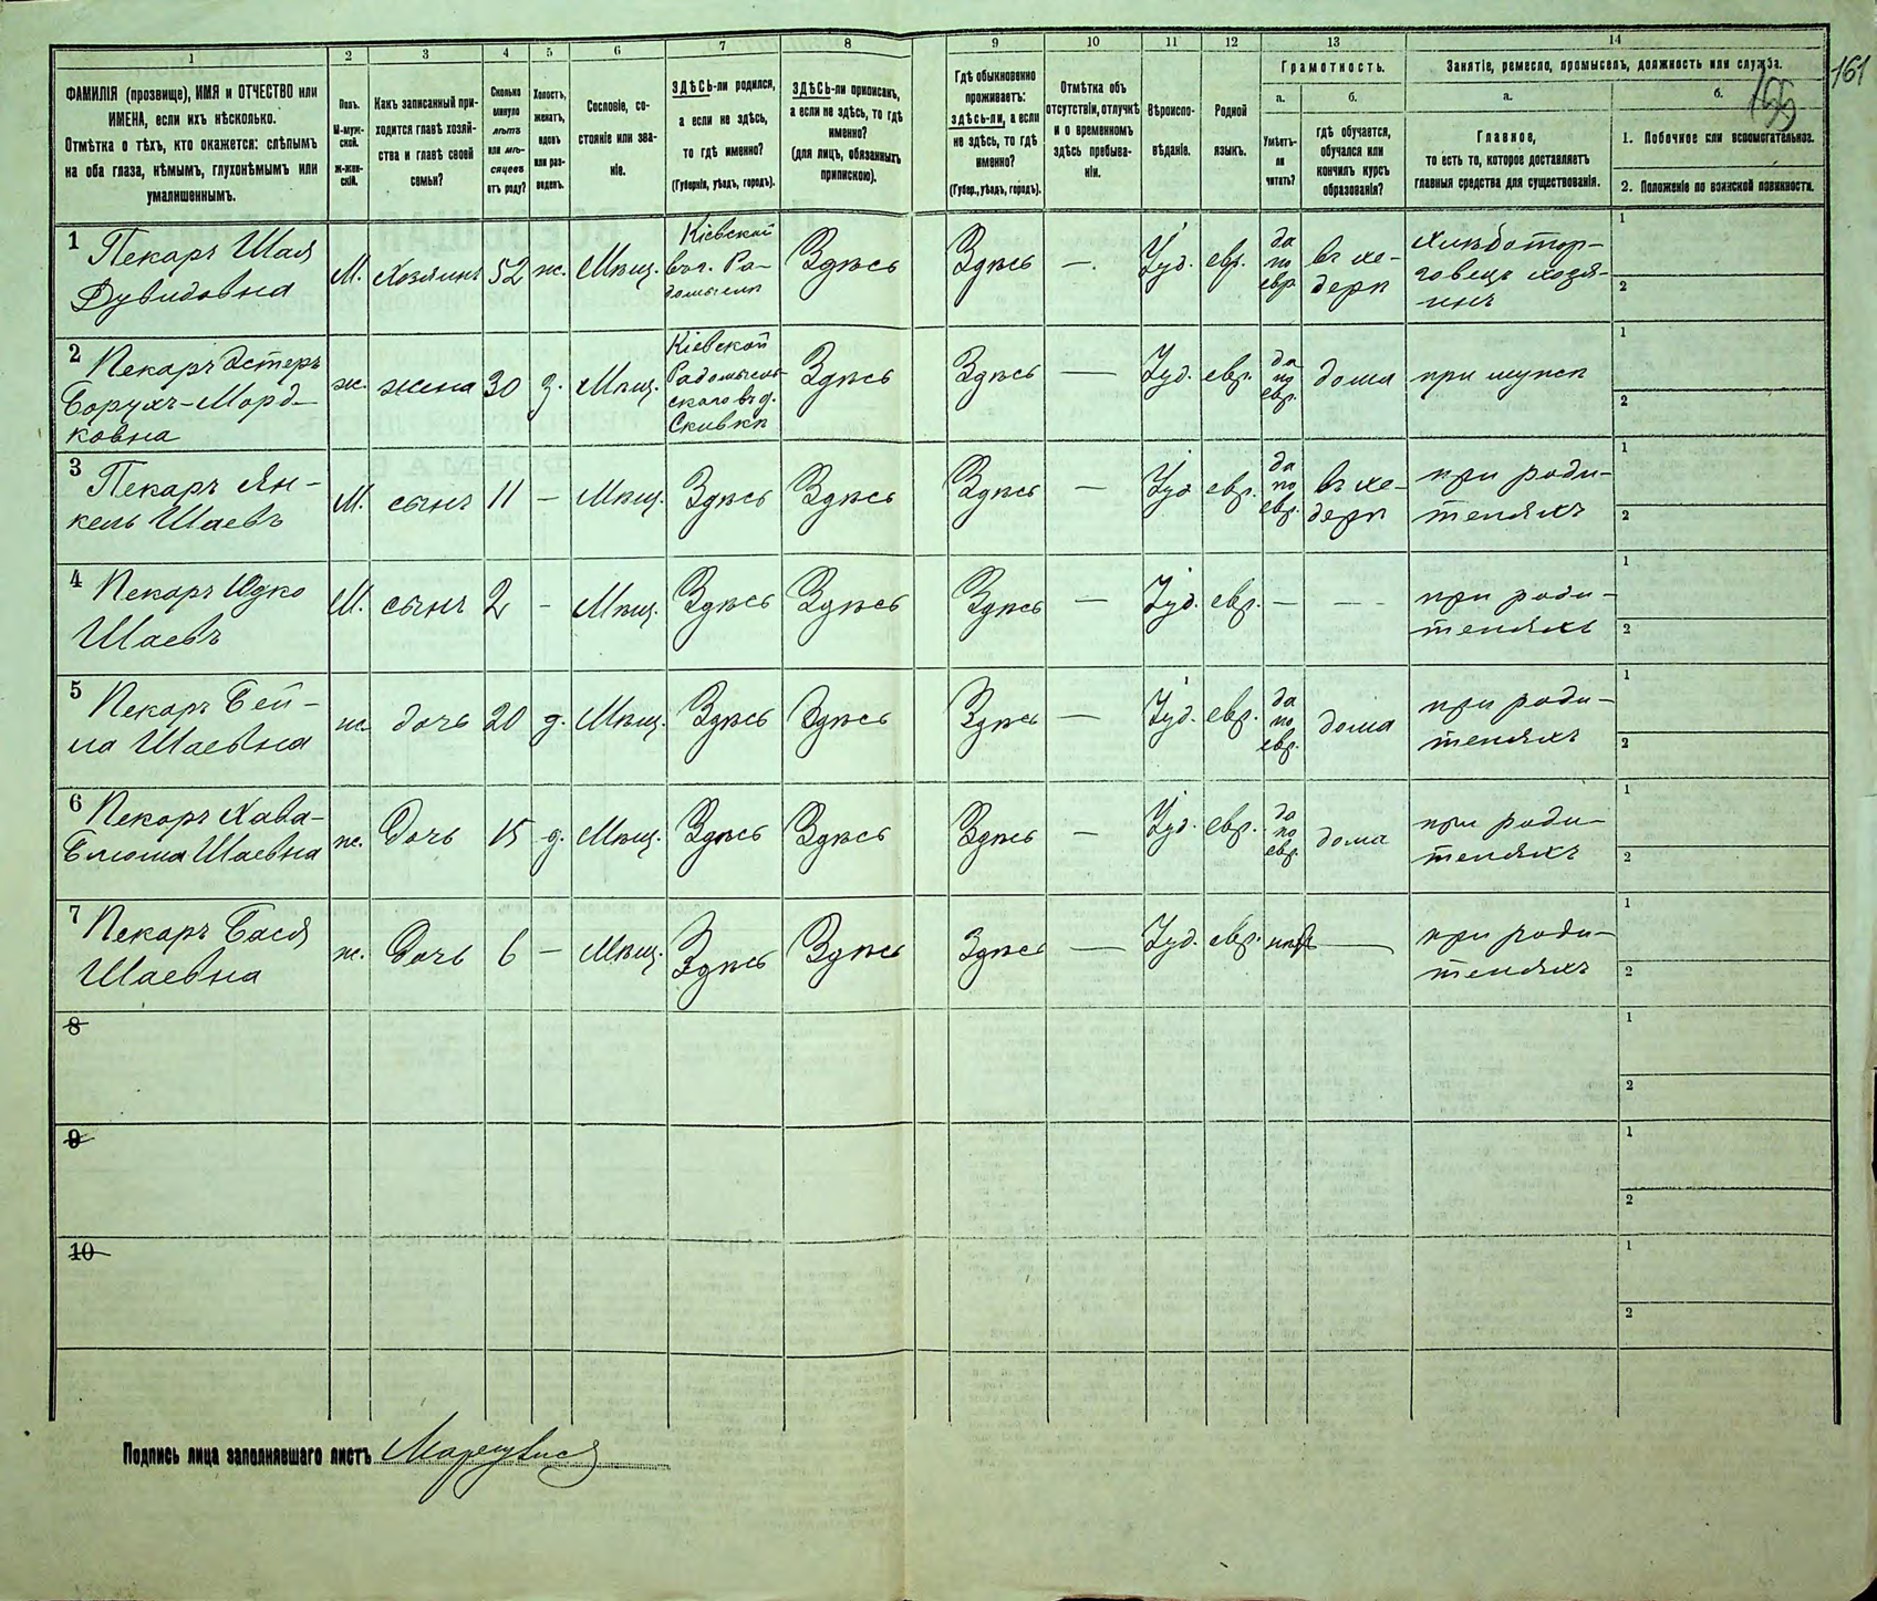 1 2 3 4 5 6 7 8 9 10 11 12 13 14
161
ФАМИЛІЯ (прозвище), ИМЯ и ОТЧЕСТВО или
ИМЕНА, если ихъ нѣсколько.
Отмѣтка о тѣхъ, кто окажется: слѣпымъ
на оба глаза, нѣмымъ, глухонѣмымъ или
умалишеннымъ.
Полъ.
М-муж-
ской.
Ж-жен-
скій.
Какъ записанный при-
ходится главѣ хозяй-
ства и главѣ своей
семьи?
Сколько
минуло
лѣтъ
или мѣ-
сяцевъ
отъ роду?
Холостъ,
женатъ,
вдовъ
или раз-
веденъ.
Сословіе, со-
стояніе или зва-
ніе.
ЗДѢСЬ-ли родился,
а если не здѣсь,
то гдѣ именно?
(Губернія, уѣздъ, городъ).
ЗДѢСЬ-ли приписанъ,
а если не здѣсь, то гдѣ
именно?
(для лицъ, обязанныхъ
припискою).
Гдѣ обыкновенно
проживаетъ:
здѣсь-ли, а если
не здѣсь, то гдѣ
именно?
(Губер., уѣздъ, городъ).
Отмѣтка объ
отсутствіи, отлучкѣ
и о временномъ
здѣсь пребыва-
ніи.
Вѣроиспо-
вѣданіе.
Родной
языкъ.
Грамотность.
а.
Умѣетъ-
ли
читать?
б.
гдѣ обучается,
обучался или
кончилъ курсъ
образованія?
Занятіе, ремесло, промыселъ, должность или служба.
а.
Главное,
то есть то, которое доставляетъ
главныя средства для существованія.
б.
1. Побочное или вспомогательное.
2. Положеніе по воинской повинности.
1 Пекарь Шая
Дувидовна
М. Хозяинъ 52 ж. Мѣщ.
Кіевской
вол. Ра-
домыслѣ
Здѣсь Здѣсь — Іуд. евр.
да
по
евр
въ хе-
дерѣ
Хлѣботор-
говецъ хозя-
инъ
1
2
2 Пекарь Эстеръ
Борухъ-Морд-
ковна
ж. жена 30 з. Мѣщ.
Кіевской
Радомысль-
скаго въ д.
Сливкѣ
Здѣсь Здѣсь — Іуд. евр.
да
по
евр.
дома при мужѣ
1
2
3 Пекарь Ян-
кель Шаевъ
М. сынъ 11 — Мѣщ. Здѣсь Здѣсь Здѣсь — Іуд евр.
да
по
евр.
въ хе-
дерѣ
при роди-
теляхъ
1
2
4 Пекарь Юдко
Шаевъ
М. сынъ 2 — Мѣщ. Здѣсь Здѣсь Здѣсь — Іуд. евр. — —
при роди-
теляхъ
1
2
5 Пекарь Бей-
ла Шаевна
ж. дочь 20 д. Мѣщ. Здѣсь Здѣсь Здѣсь — Іуд. евр.
да
по
евр.
дома
при роди-
теляхъ
1
2
6 Пекарь Хава-
Блюма Шаевна
ж. Дочь 15 д. Мѣщ. Здѣсь Здѣсь Здѣсь — Іуд. евр.
да
по
евр.
дома
при роди-
теляхъ
1
2
7 Пекарь Бася
Шаевна
ж. Дочь 6 — Мѣщ. Здѣсь Здѣсь Здѣсь — Іуд. евр. нѣтъ —
при роди-
теляхъ
1
2
8
1
2
9
1
2
10
1
2
Подпись лица заполнявшаго листъ